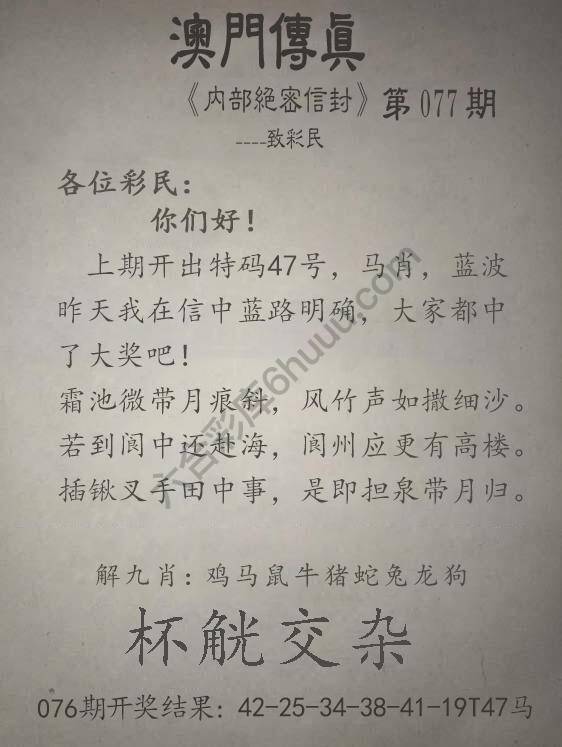 澳門傳眞
《内部絕密信封》第077期
----致彩民
各位彩民：
你们好！
上期开出特码47号，马肖，蓝波
昨天我在信中蓝路明确，大家都中
了大奖吧！
霜池微带月痕斜，风竹声如撒细沙。
若到阆中还赴海，阆州应更有高楼。
插锹叉手田中事，是即担泉带月归。
解九肖：鸡马鼠牛猪蛇兔龙狗
杯觥交杂
076期开奖结果：42-25-34-38-41-19T47马
六合彩库6huuu.com